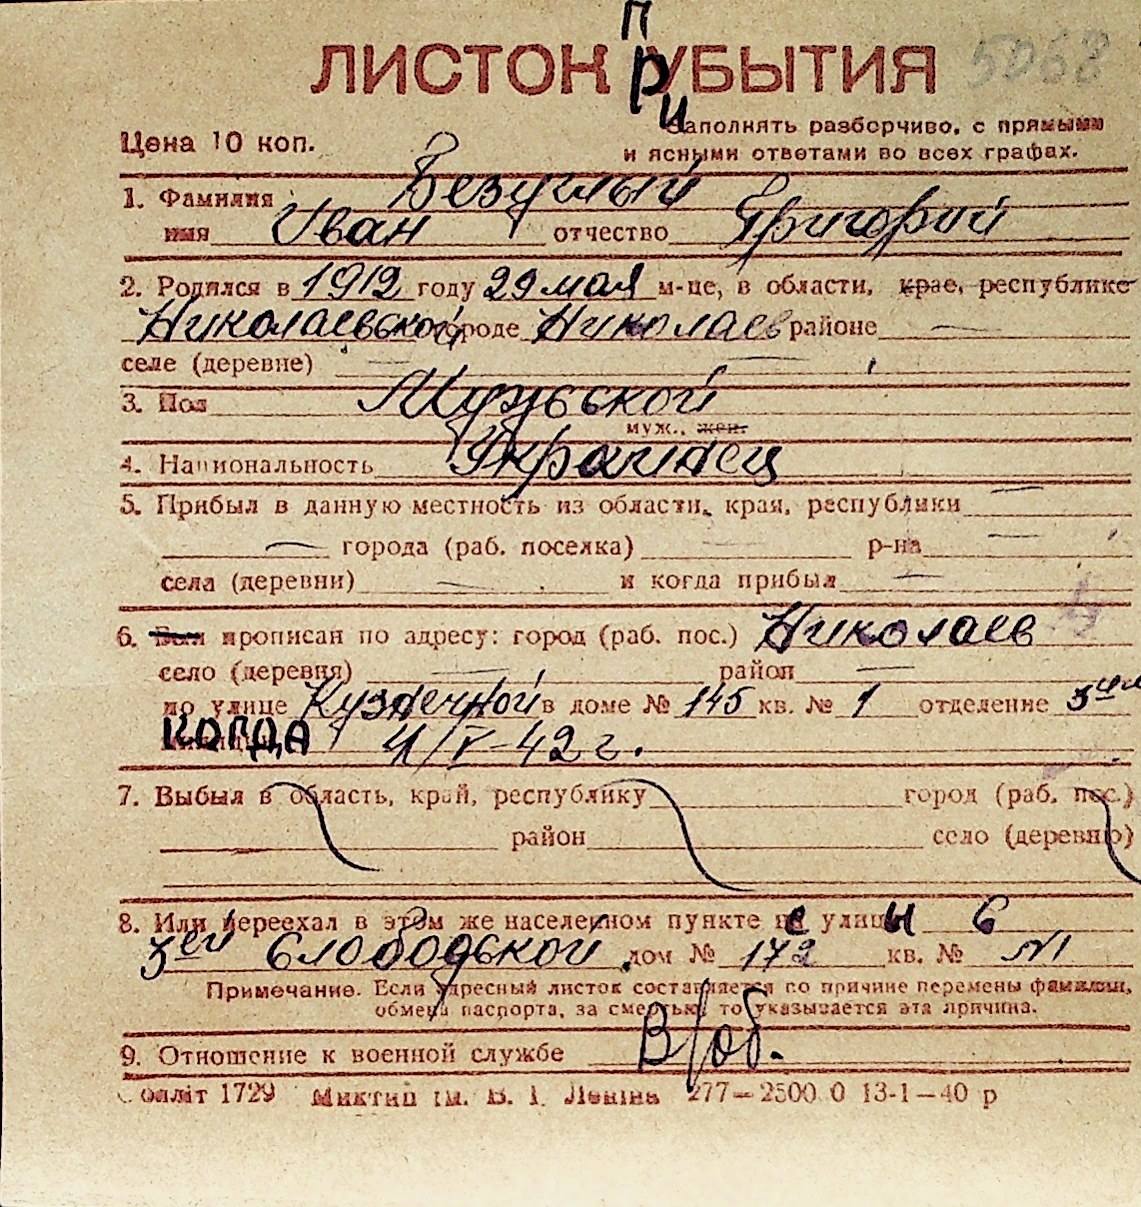 ЛИСТОК ПРИУБЫТИЯ 5068
Цена 10 коп.
Заполнять разборчиво, с прямыми
и ясными ответами во всех графах.
1. Фамилия Безуглый
имя Иван отчество Григорий
2. Родился в 1912 году 29 мая м-це, в области, крае, республике
Николаевской городе Николаев районе —
селе (деревне) —
3. Пол Мужской
муж., жен.
4. Национальность Украинец
5. Прибыл в данную местность из области, края, республики —
— города (раб. поселка) — р-на —
села (деревни) — и когда прибыл —
6. Был прописан по адресу: город (раб. пос.) Николаев
село (деревня) — район —
по улице Кузнечной в доме № 145 кв. № 1 отделение 3
КОГДА 4/V-42 г.
7. Выбыл в область, край, республику город (раб. пос.)
район село (деревню)
8. Или переехал в этом же населенном пункте с улицы 6
3ей Слободской дом № 172 кв. № N1
Примечание. Если адресный листок составляется по причине перемены фамилии,
обмена паспорта, за смертью, то указывается эта причина.
9. Отношение к военной службе В/об.
1729 Миктип ім. В. І. Леніна 277—2500 0 13-1—40 р